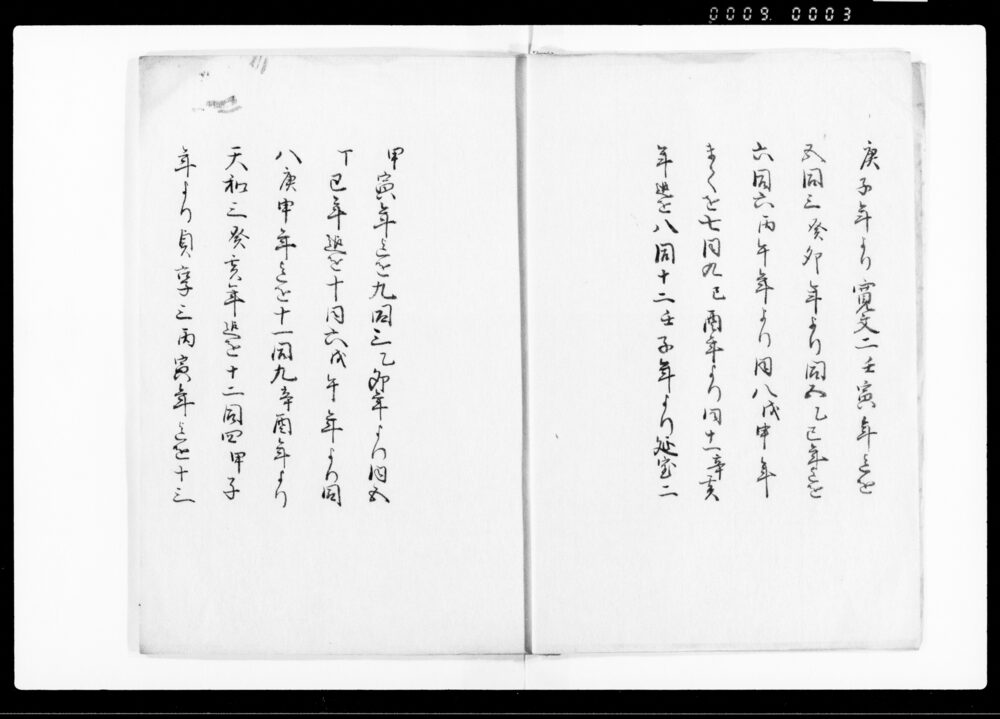 0009 0003
庚子年より寛文二壬寅年迄を
五同三癸卯年より同五乙巳年迄を
六同六丙午年より同八戊申年
まてを七同九己酉年より同十一辛亥
年迄を八同十二壬子年より延宝二
甲寅年迄を九同三乙卯年より同五
丁巳年迄を十同六戊午年より同
八庚申年迄を十一同九辛酉年より
天和三癸亥年迄を十二同四甲子
年より貞享三丙寅年迄を十三